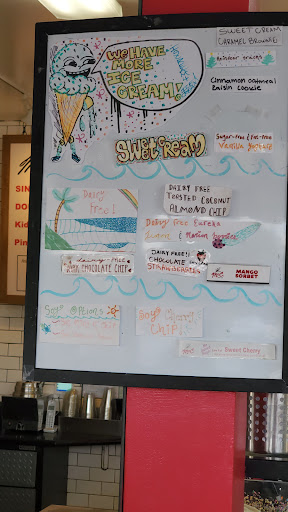 WE HAVE
MORE
ICE
CREAM!
SWEET CREAM
CARAMEL BROWNIE
Reindeer
Cinnamon oatmeal
Raisin cookie
SWEET CREAM
Sugar-free & fat-free
Vanilla
Dairy
free!
DAIRY FREE
TOASTED COCONUT
ALMOND CHIP
Dairy free Eureka
Lemon &
dairy-free
CHOCOLATE CHIP
DAIRY FREE!
CHOCOLATE
STRAWBERRY
MANGO
SORBET
Soy Options
Soy
CHIP
Sweet Cherry
SIN
DO
Ki
Pin